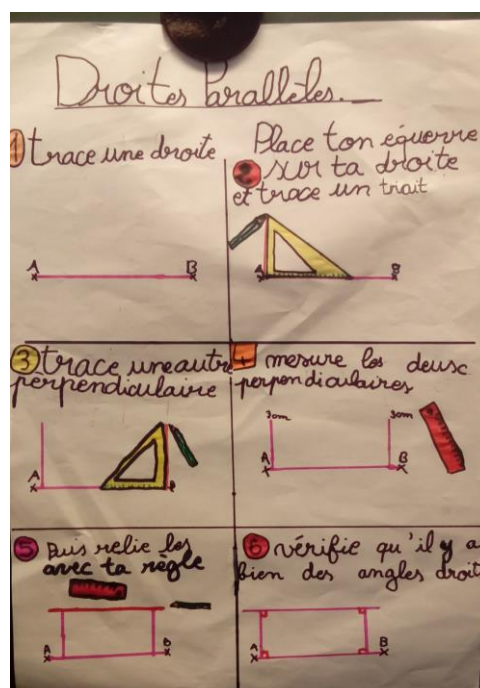 Droites Parallèles.
1 trace une droite
A
B
Place ton équerre
2 sur ta droite
et trace un trait
A
B
3 trace une autre
perpendiculaire
A
B
4 mesure les deusc
perpendiculaires
3cm
3cm
A
B
5 Puis relie les
avec ta règle
A
B
6 vérifie qu'il y a
bien des angles droit
A
B